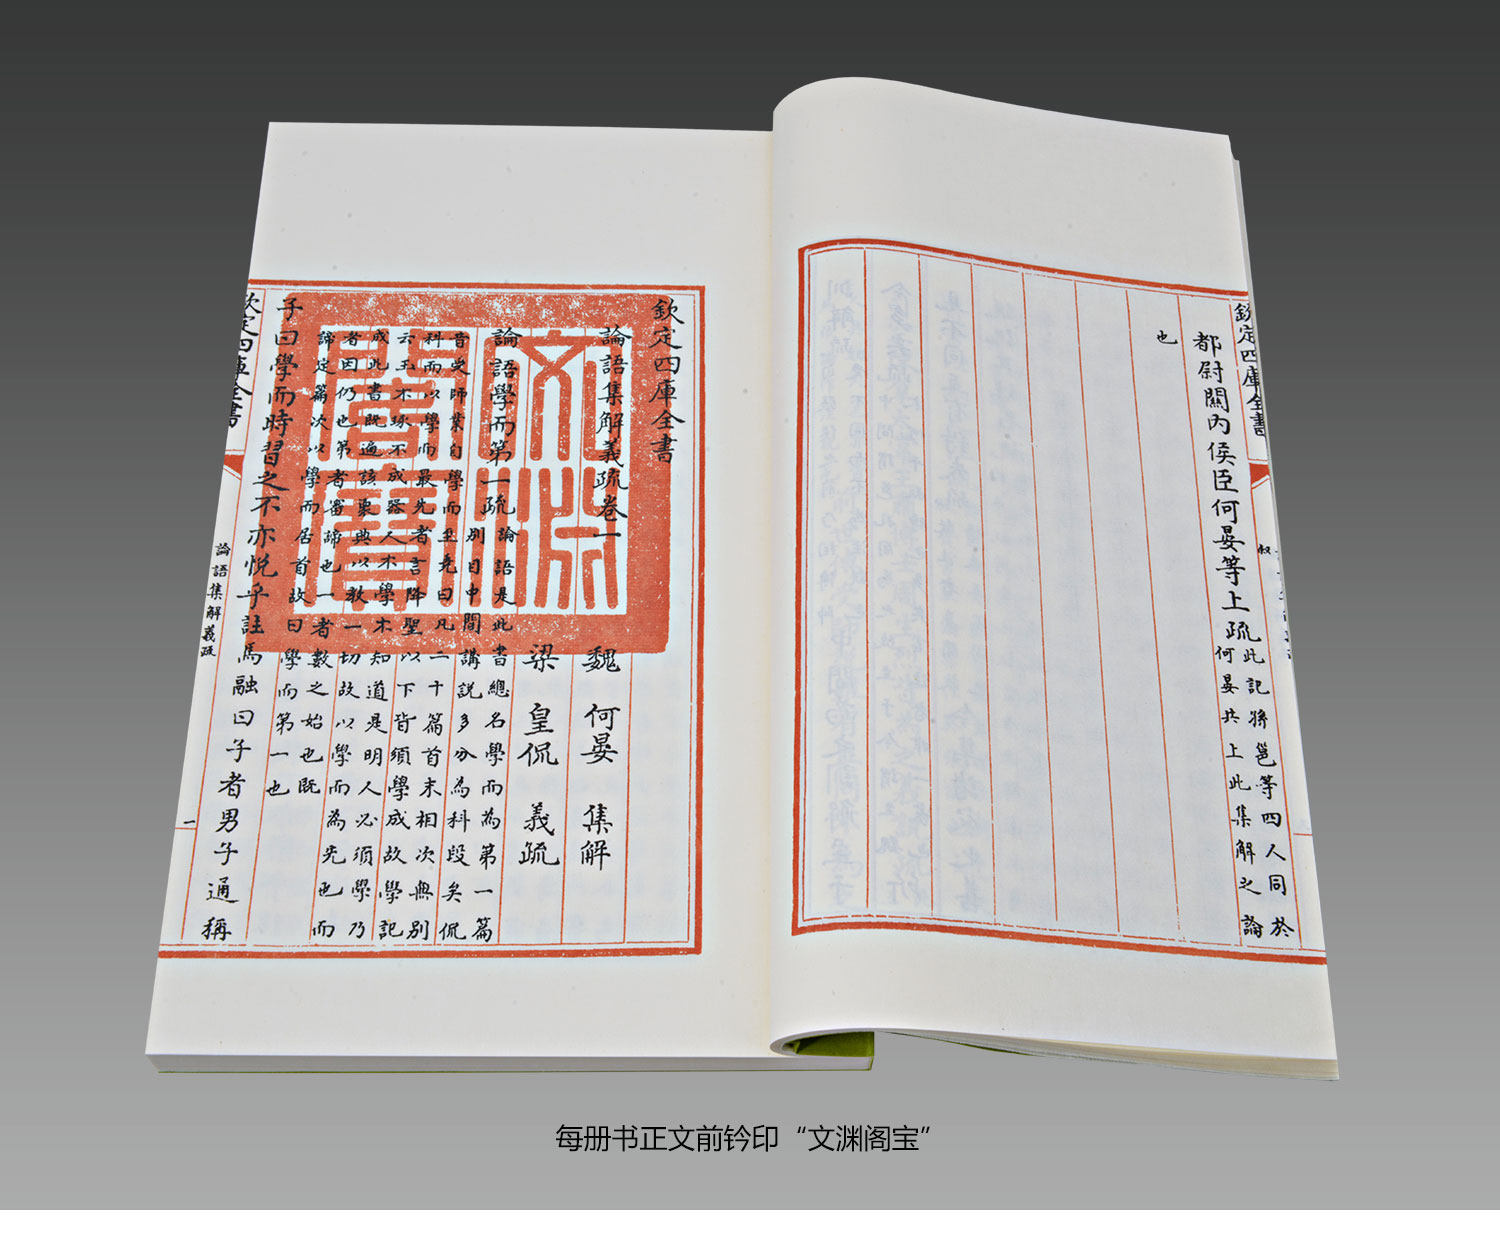 欽定四庫全書
都尉關內侯臣何晏等上疏
此記孫邕等四人同於
何晏共上此集解之論
也
欽定四庫全書
文淵閣寶
論語集解義疏卷一
魏 何晏 集解
梁 皇侃 義疏
論語學而第一疏
論語是此書總名學而為第一篇
別目中間講說多分為科段矣侃
昔受師業自學而至堯曰凡二十篇首末相次無別
科而以學而最先者言降聖以下皆須學成故學記
云玉不琢不成器人不學不知道是明人必須學乃
成此書既遍該衆典以教一切故以學而為先也而
者因仍也第者審諦也一者數之始也既
諦定篇次以學而居首故曰學而第一也
子曰學而時習之不亦悅乎註馬融曰子者男子通稱
欽定四庫全書
論語集解義疏
一
每册书正文前钤印“文渊阁宝”